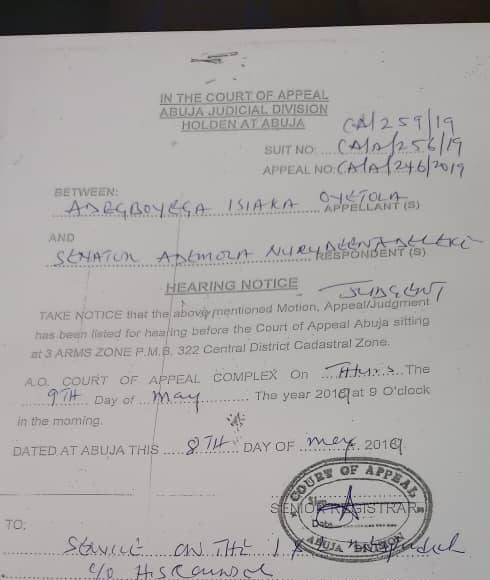 IN THE COURT OF APPEAL
ABUJA JUDICIAL DIVISION
HOLDEN AT ABUJA
CA/259/19
SUIT NO: CA/A/256/19
APPEAL NO: CA/A/246/2019
BETWEEN:
ADEGBOYEGA ISIAKA OYETOLA APPELLANT (S)
AND
SENATOR ADEMOLA NURUDEEN ADELEKE RESPONDENT (S)
HEARING NOTICE
TAKE NOTICE that the above mentioned Motion, Appeal/Judgment
has been listed for hearing before the Court of Appeal Abuja sitting
at 3 ARMS ZONE P.M.B. 322 Central District Cadastral Zone.
A.O. COURT OF APPEAL COMPLEX On Thurs The
9TH Day of May The year 2019 at 9 O'clock
in the morning.
DATED AT ABUJA THIS 8TH DAY OF May 2019.
COURT OF APPEAL
Sign
SENIOR REGISTRAR
Date
ABUJA DIVISION
TO:
SERVICE ON THE 1st
C/O HIS COUNSEL